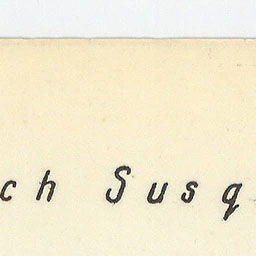 ch Susq